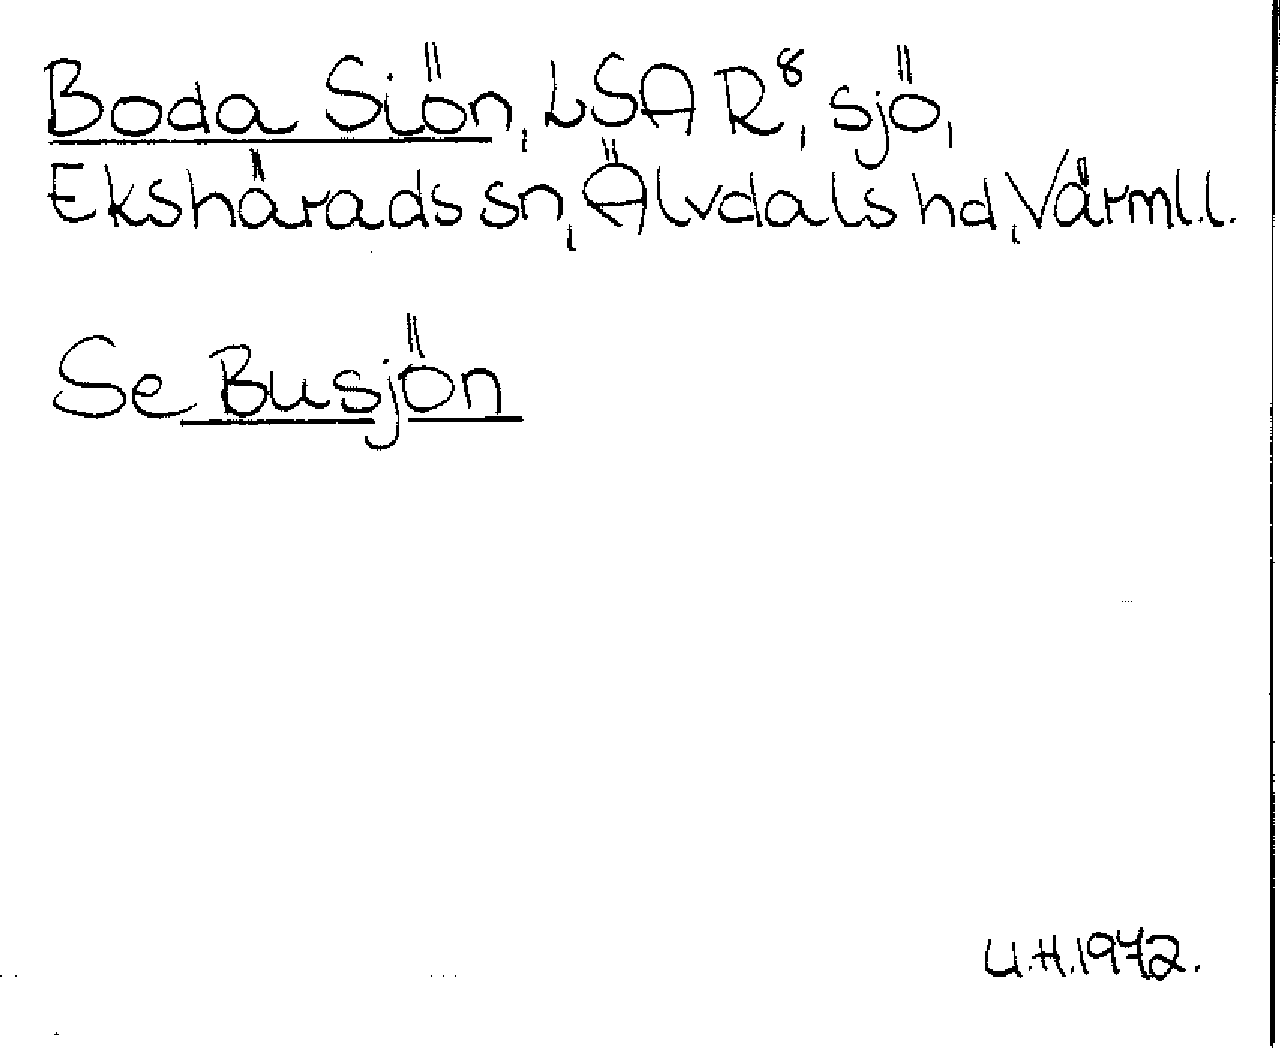 Boda Siön, LSA R⁸, sjö,
Ekshärads sn, Älvdals hd, Värml.l.
Se Busjön
U.H.1972.